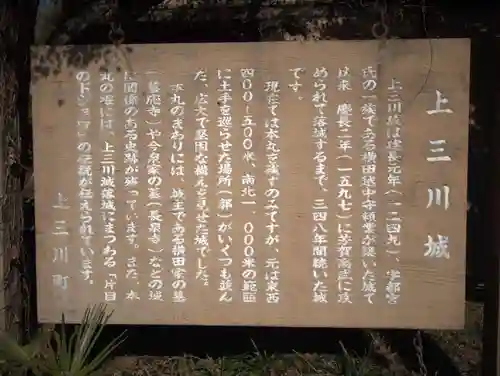 上三川城
上三川城は建長元年(一二四九)、宇都宮
氏の一族である横田越中守頼業が築いた城で
以来、慶長二年(一五九七)に芳賀高武に攻
められて落城するまで、三四八年間続いた城
です。
現在では本丸を残すのみですが、元は東西
四〇〇〜五〇〇米、南北一、〇〇〇米の範囲
に土手を巡らせた場所(郭)がいくつも並ん
だ、広大で堅固な構えを見せた城でした。
本丸のまわりには、城主である横田家の墓
(善応寺)や今泉家の墓(長泉寺)などの城
に関係のある史跡が残っています。また、本
丸の堀には、上三川城落城にまつわる「片目
のドジョウ」の伝説が伝えられています。
上三川町